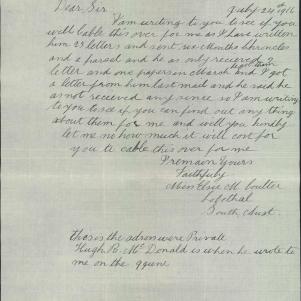 July 24th 1916
Dear Sir
I am writing to you to see if you
will Cable this over for me as I have written
him 23 letters and sent six Months Chronicles
and a parsel and he as only received 2
letter and one papers in March and I got
a letter from him last mail and he said he
as not recieved any since so I am writing
to you to see if you can find out any thing
about them for me and will you kindly
let me no how much it will cost for
you to cable this over for me
I remain Yours
Faithfuly
Miss Elsie M. Coulter
Lobethal
South Aust.
this is the adress were Private
Hugh R. Mc Donald is when he wrote to
me on the 9 June